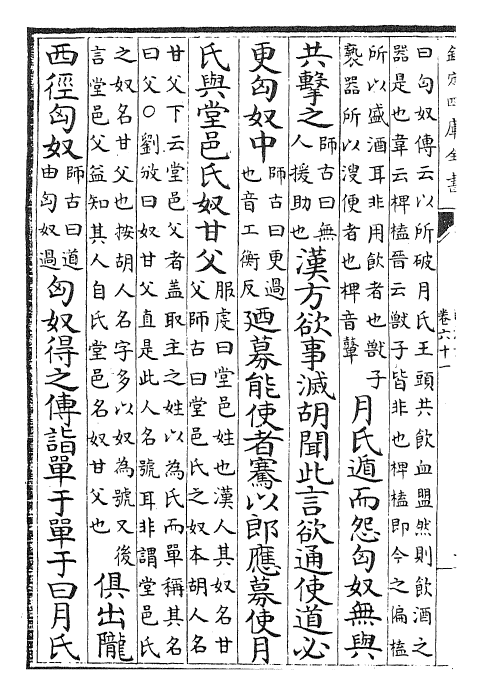 欽定四庫全書
卷六十一
曰匈奴傳云以所破月氏王頭共飲血盟然則飲酒之
器是也韋云椑榼晉云獸子皆非也椑榼即今之偏榼
所以盛酒耳非用飲者也獸子
褻器所以溲便者也椑音鼙
月氏遁而怨匈奴無與
共擊之師古曰無人援助也漢方欲事滅胡聞此言欲通使道必
更匈奴中師古曰更過也音工衡反廼募能使者騫以郎應募使月
氏與堂邑氏奴甘父
服虔曰堂邑姓也漢人其奴名甘
父師古曰堂邑氏之奴本胡人名
甘父下云堂邑父者盖取主之姓以為氏而單稱其名
曰父○劉攽曰奴甘父直是此人名號耳非謂堂邑氏
之奴名甘父也按胡人名字多以奴為號又後
言堂邑父益知其人自氏堂邑名奴甘父也
俱出隴
西徑匈奴師古曰道由匈奴過匈奴得之傳詣單于單于曰月氏